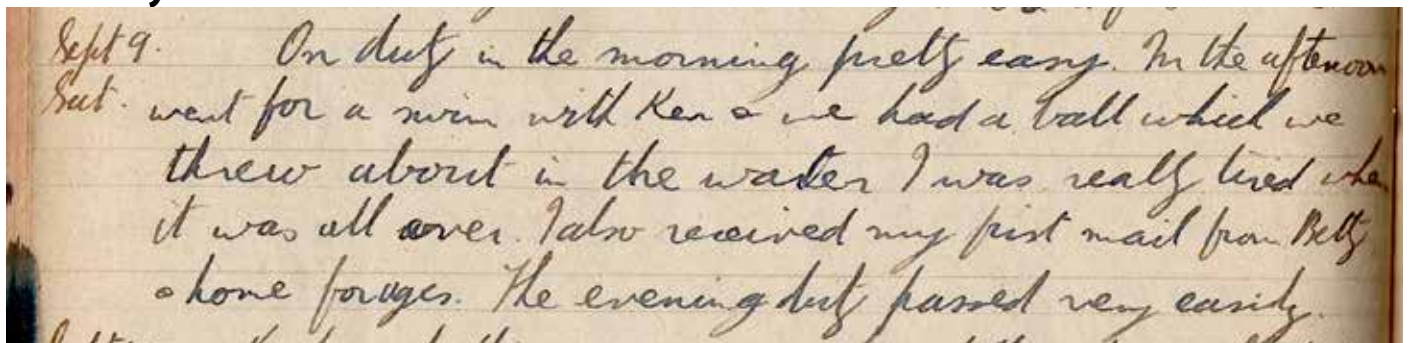 Sept 9. On duty in the morning pretty easy. In the afternoon
Sat. went for a swim with Ken & we had a ball which we
threw about in the water I was really tired when
it was all over. I also received my first mail from Betty
& home for ages. The evening duty passed very easily.